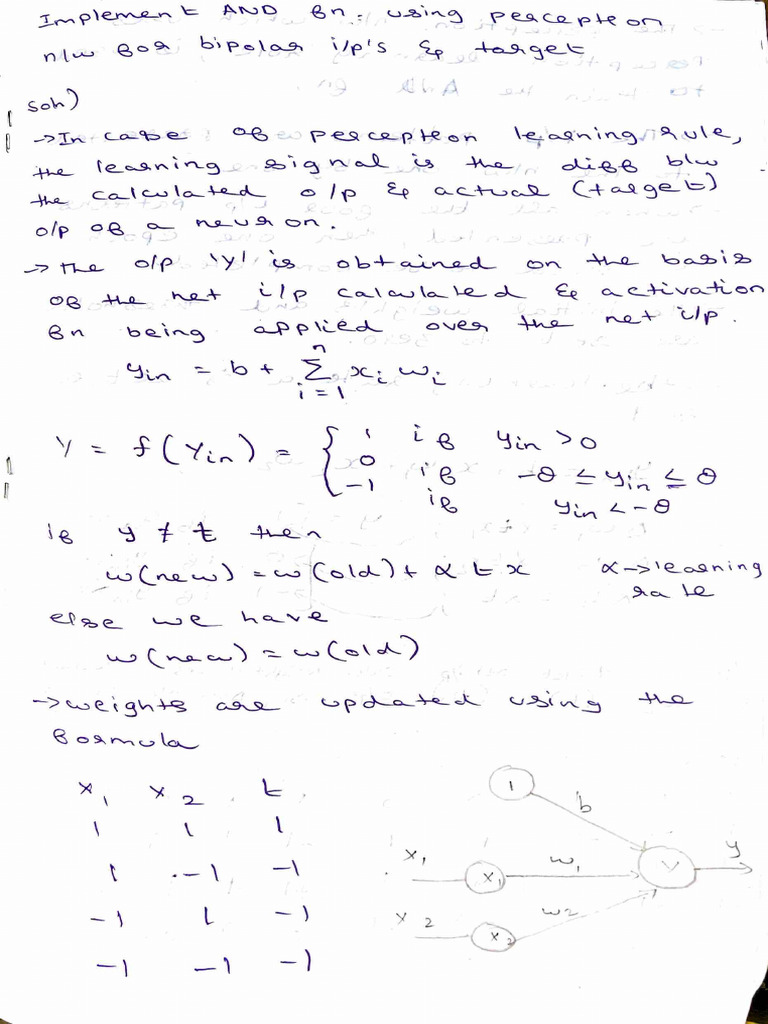 Implement AND fn. using perceptron
n/w for bipolar i/p's & target
soln)
→In case of perceptron learning rule,
the learning signal is the diff b/w
the calculated o/p & actual (target)
o/p of a neuron.
→ The o/p 'y' is obtained on the basis
of the net i/p calculated & activation
fn being applied over the net i/p.
yin = b + n∑i=1 xi wi
Y = f(Yin) = { 1 if yin > 0
0 if -θ ≤ yin ≤ θ
-1 if yin < -θ
if y ≠ t then
w(new) = w(old) + α t x α→learning
rate
else we have
w(new) = w(old)
→weights are updated using the
formula
x1 x2 t
1 1 1
1 -1 -1
-1 1 -1
-1 -1 -1
1 b
x1 x1 w1 Y y
x2 x2 w2